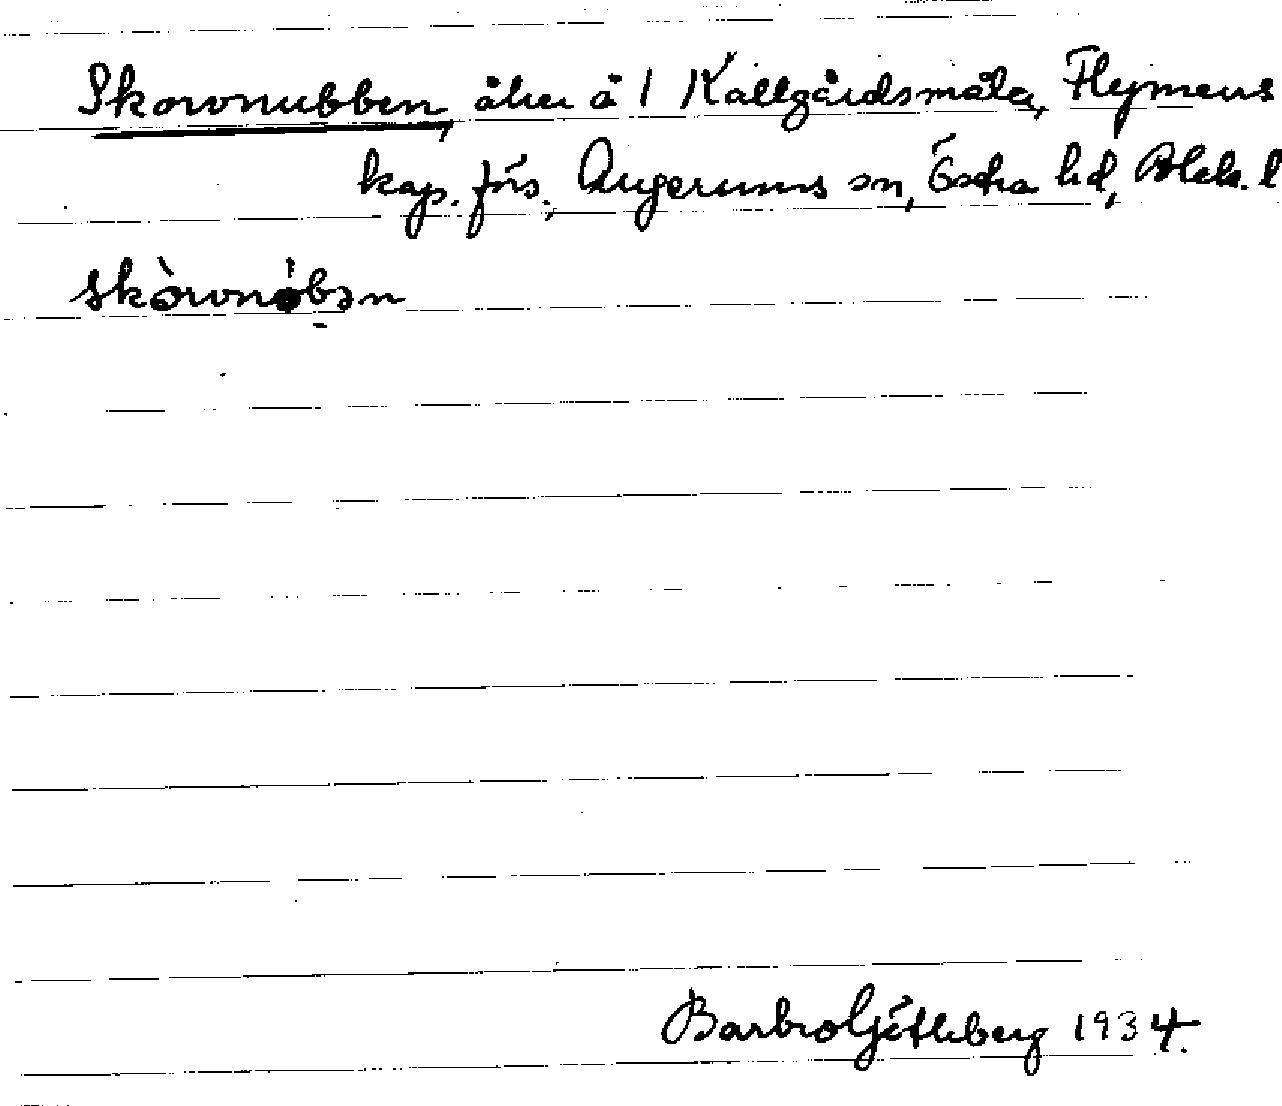 Skorvnubben, åker å 1 Kallgårdsmåla, Flymens
kap. förs., Augerums sn, Östra hd, Blek. l
skòrvnòbən
Barbro Götheberg 1934.